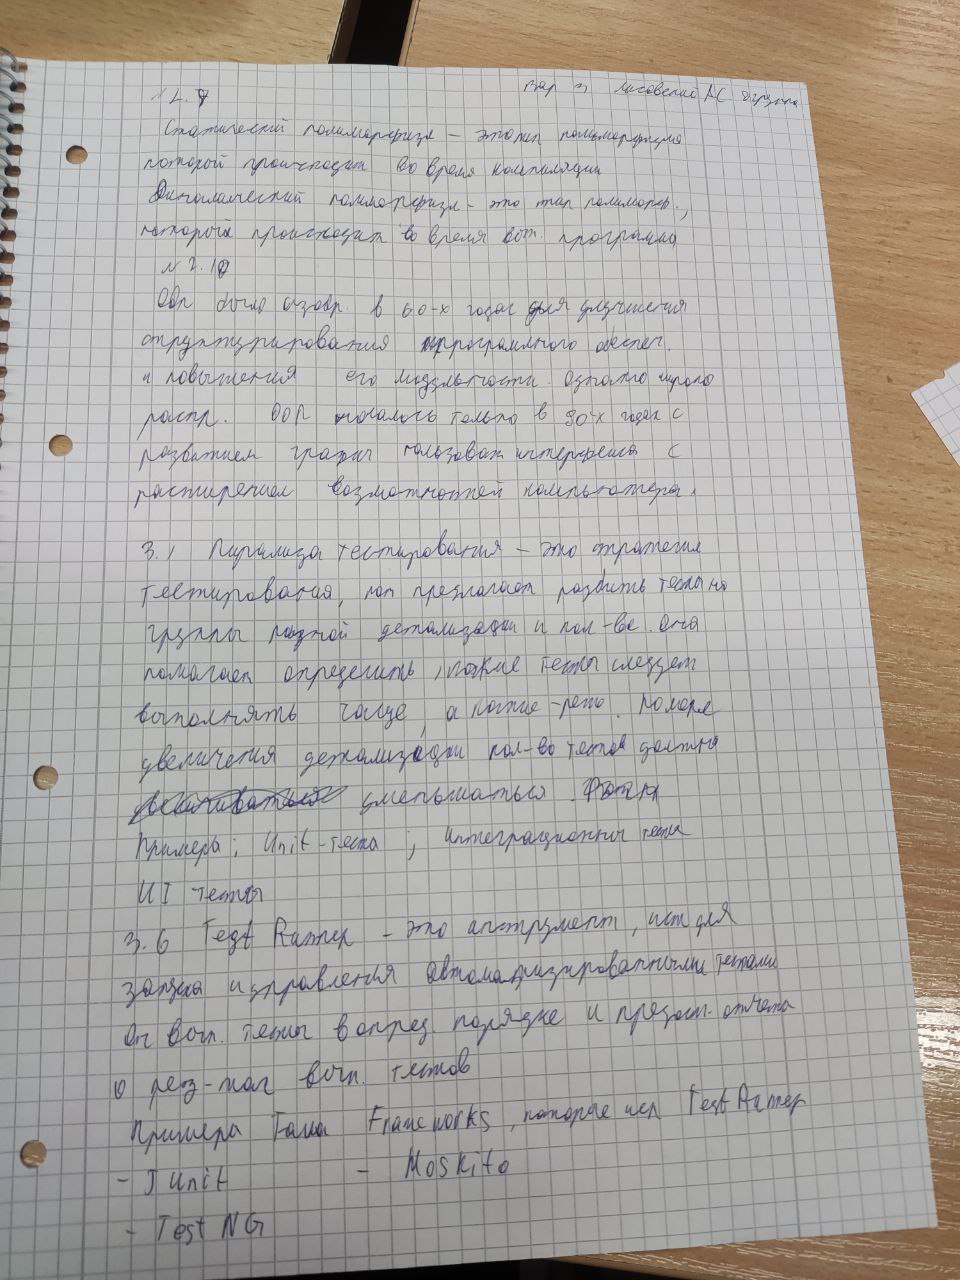 Вар 3 Лисовский АС 2 группа
№ 1.7
Статический полиморфизм – это тип полиморфизма
который происходит во время компиляции
Динамический полиморфизм – это тип полиморф.,
который происходит во время вып. программы
№ 2.10
ООП было изобр. в 60-х годах для улучшения
структурирования программного обеспеч.
и повышения его модульности. Однако широко
распр. ООП началось только в 90-х годах с
развитием графич пользоват интерфейса с
расширением возможностей компьютера.
3.1 Пирамида тестирования – это стратегия
тестирования, кот предлагает разбить тесты на
группы разной детализации и кол-ва. Она
помогает определить, какие тесты следует
выполнять чаще, а какие – реже. По мере
увеличения детализации кол-во тестов должно
уменьшаться.
Примеры: Unit-тесты; интеграционны тесты
UI тесты
3.6 Test Runner – это инструмент, исп для
запуска и управления автоматизированными тестами
Он вып. тесты в опред. порядке и предост. отчеты
о рез-тах вып. тестов
Примеры Frameworks, которые исп Test Runner
- JUnit - Moskito
- Test NG